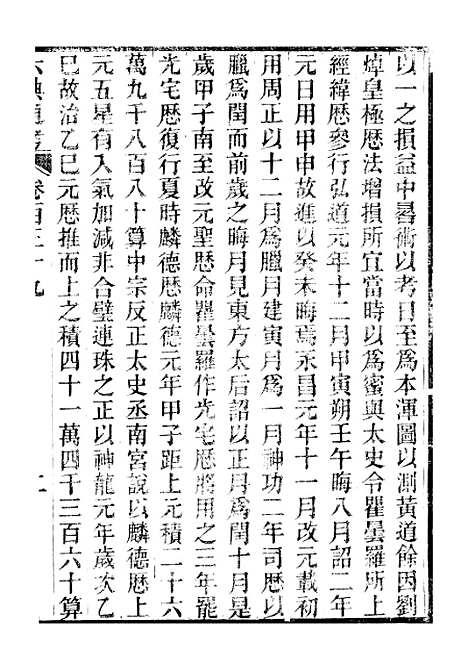 以一之損益中晷術以考日至爲木渾圖以測黃道餘因劉
焯皇極歷法增損所宜當時以爲蜜與太史令瞿曇羅所上
經緯歷參行弘道元年十二月甲寅朔壬午晦八月詔二年
元日用甲申故進以癸未晦焉永昌元年十一月改元載初
用周正以十二月爲臘月建寅月爲一月神功二年司歷以
臘爲閏而前歲之晦月見東方太后詔以正月爲閏十月是
歲甲子南至改元聖歷命瞿曇羅作光宅歷將用之三年罷
光宅歷復行夏時麟德歷麟德元年甲子距上元積二十六
萬九千八百八十算中宗反正太史丞南宮說以麟德歷上
元五星有入氣加減非合璧連珠之正以神龍元年歲次乙
巳故治乙巳元歷推而上之積四十一萬四千三百六十算
六典通考 卷百三十九 二